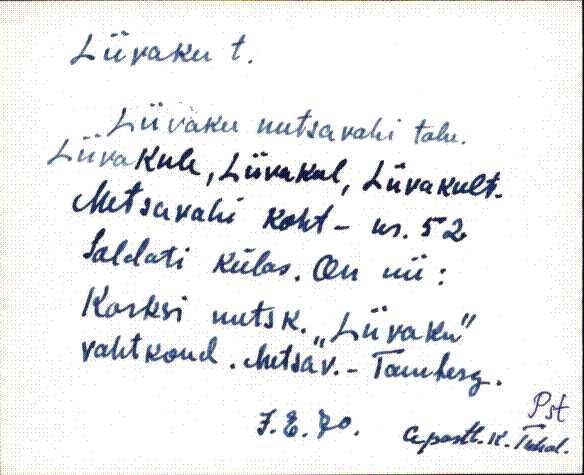 Liivaku t.
Liivaku metsavahi talu.
Liivakule, Liivakul, Liivakult.
Metsavahi koht - nr. 52
Soldati külas. On nii:
Karksi metsk. „Liivaku"
vahtkond. Metsav. - Tamberg.
Pst
J. E. 70. Apostl. K. Tuhal.